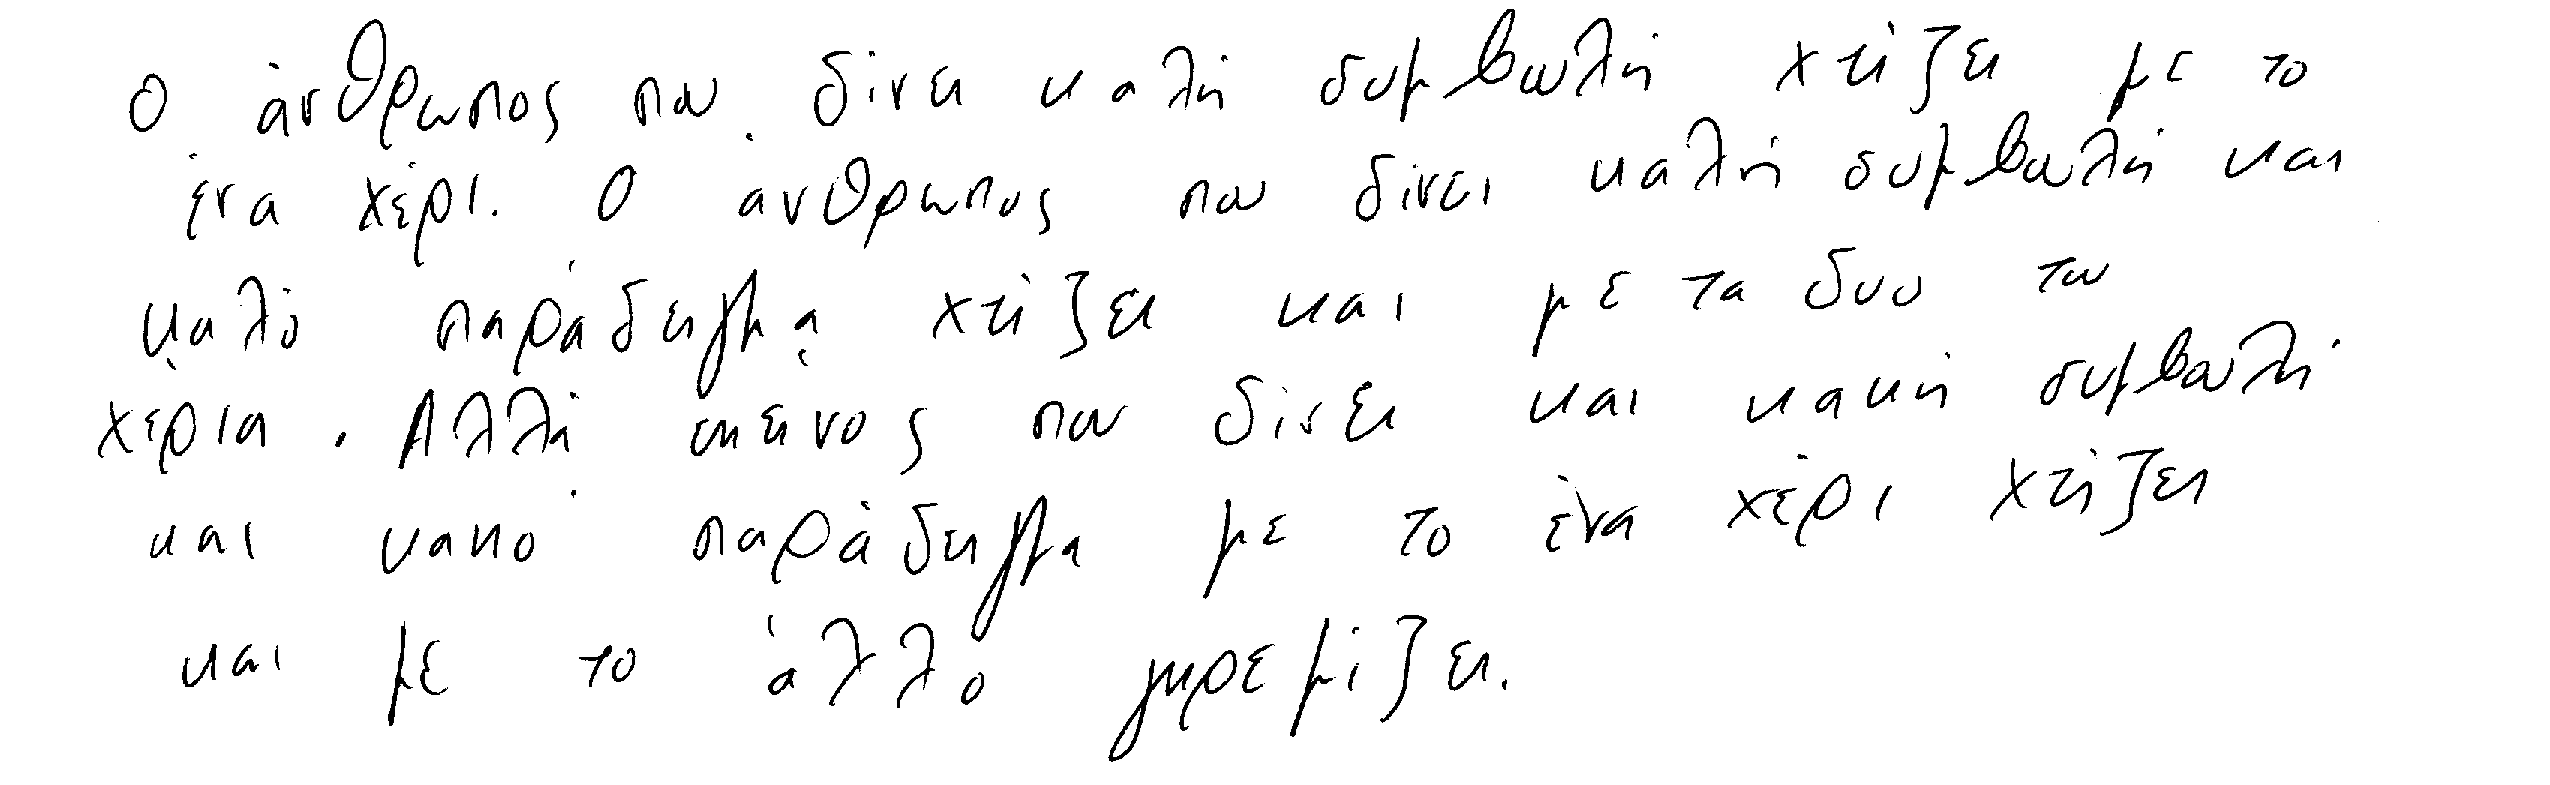 Ο άνθρωπος που δίνει καλή συμβουλή χτίζει με το
ένα χέρι. Ο άνθρωπος που δίνει καλή συμβουλή και
καλό παράδειγμα χτίζει και με τα δυο του
χέρια. Αλλά εκείνος που δίνει και κακή συμβουλή
και κακό παράδειγμα με το ένα χέρι χτίζει
και με το άλλο γκρεμίζει.